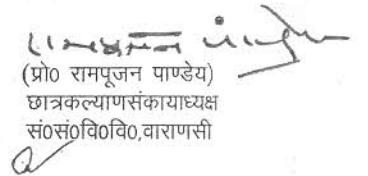 रामपूजन पाण्डेय
(प्रो० रामपूजन पाण्डेय)
छात्रकल्याणसंकायाध्यक्ष
सं०सं०वि०वि०,वाराणसी